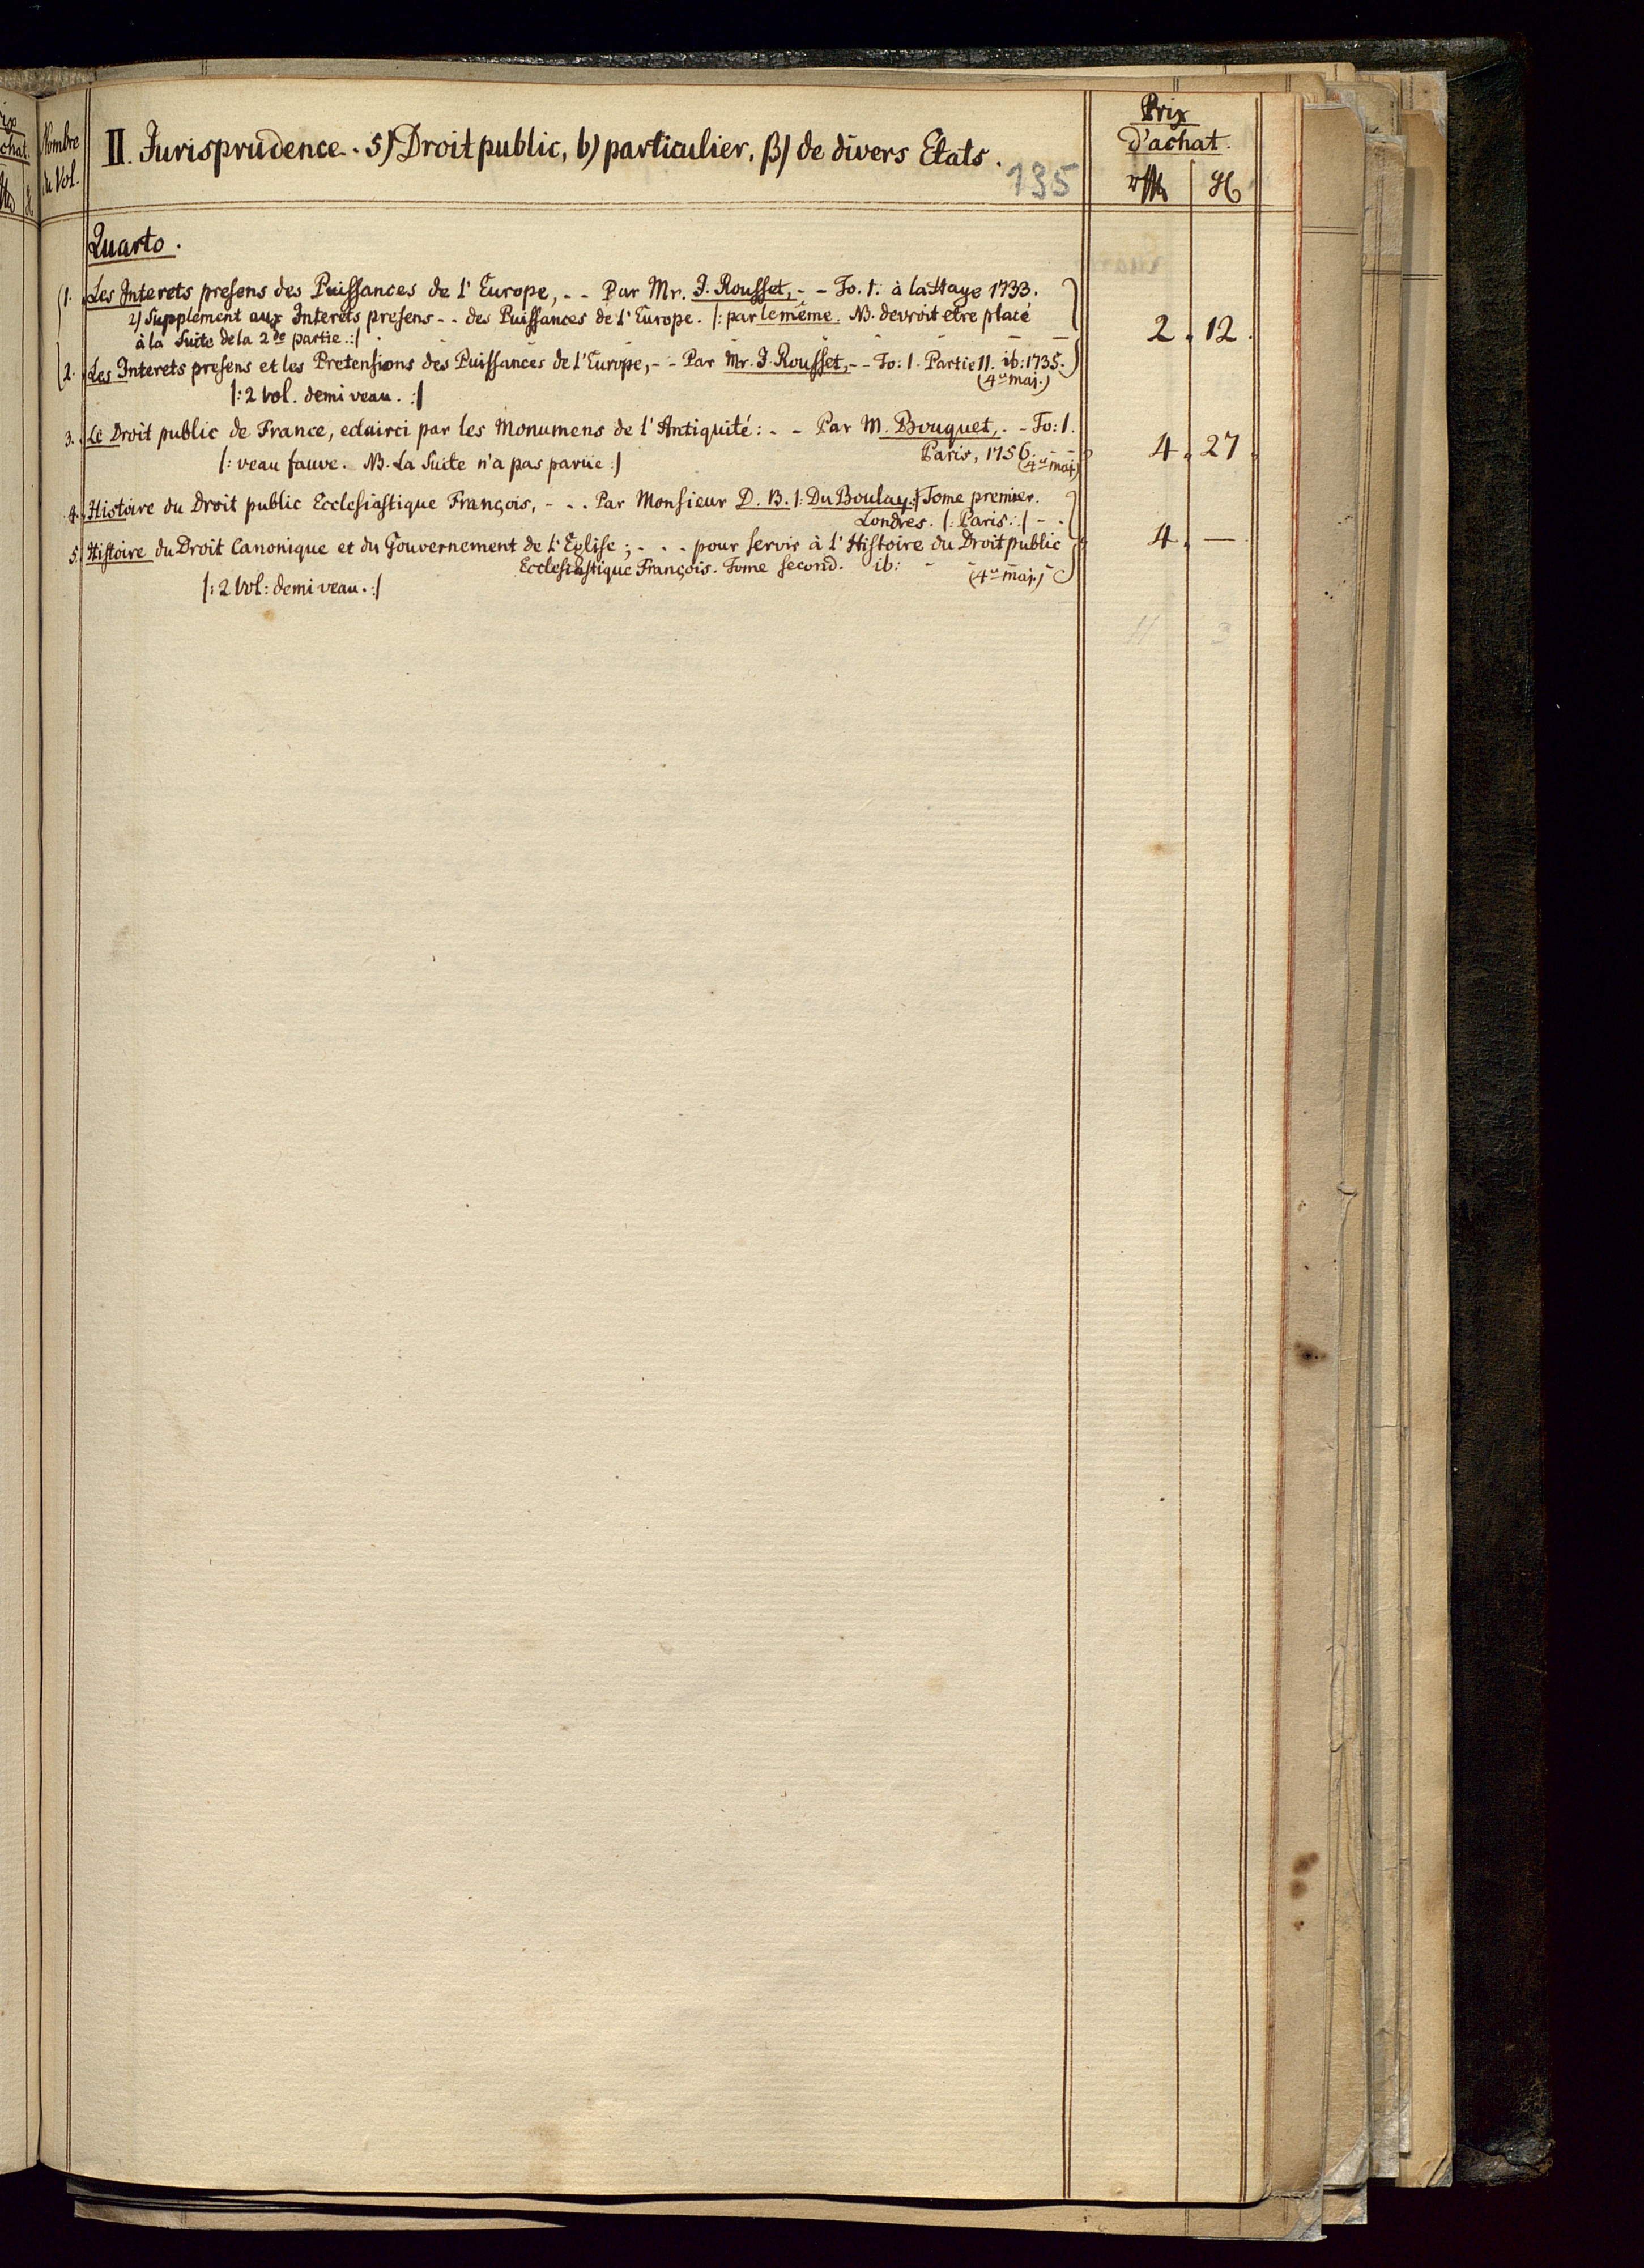 Nombre
du Vol.
II. Jurisprudence. 5) Droit public, b) particulier, β) de divers Etats.
135
Prix
d'achat.
Quarto.
1. Les Interets presens des Puissances de l'Europe, - - Par Mr. J. Rousset, - - To. I. à la Haye 1733.
2) Supplement aux Interets presens - - des Puissances de l'Europe. |: par le même. NB. devroit etre placé
à la Suite de la 2de partie. :|
2 . 12 .
2. Les Interets presens et les Pretensions des Puissances de l'Europe, - - Par Mr. J. Rousset, - - To: I. Partie II. ib: 1735.
(4to maj.)
|: 2 Vol. demi veau. :|
3. Le Droit public de France, eclairci par les Monumens de l'Antiquité: - - Par M. Bouquet, - - To: I.
Paris, 1756. (4to maj.)
4 . 27 .
|: veau fauve. NB. La Suite n'a pas parüe :|
4. Histoire du Droit public Ecclesiastique François, - - - Par Monsieur D. B. |: Du Boulay :| Tome premier.
Londres. |: Paris. :| - -
5. Histoire du Droit Canonique et du Gouvernement de l'Eglise; - - - pour servir à l'Histoire du Droit public
4 . — .
Ecclesiastique François. Tome second. ib: - (4to maj.)
|: 2 Vol: demi veau. :|
11 3